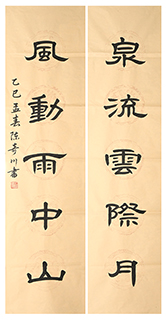 泉流雲際月
風動雨中山
乙巳孟春陈奇川書